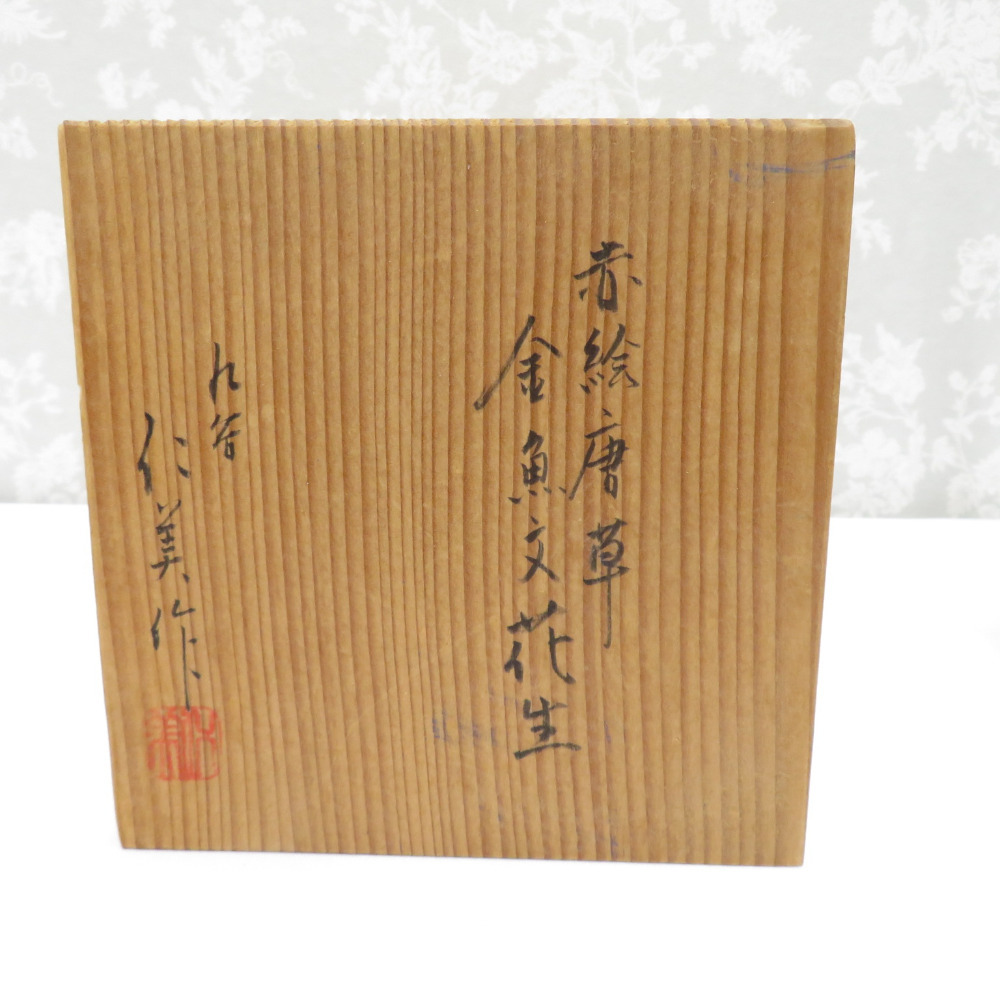 赤絵唐草
金魚文花生
九谷
仁美作